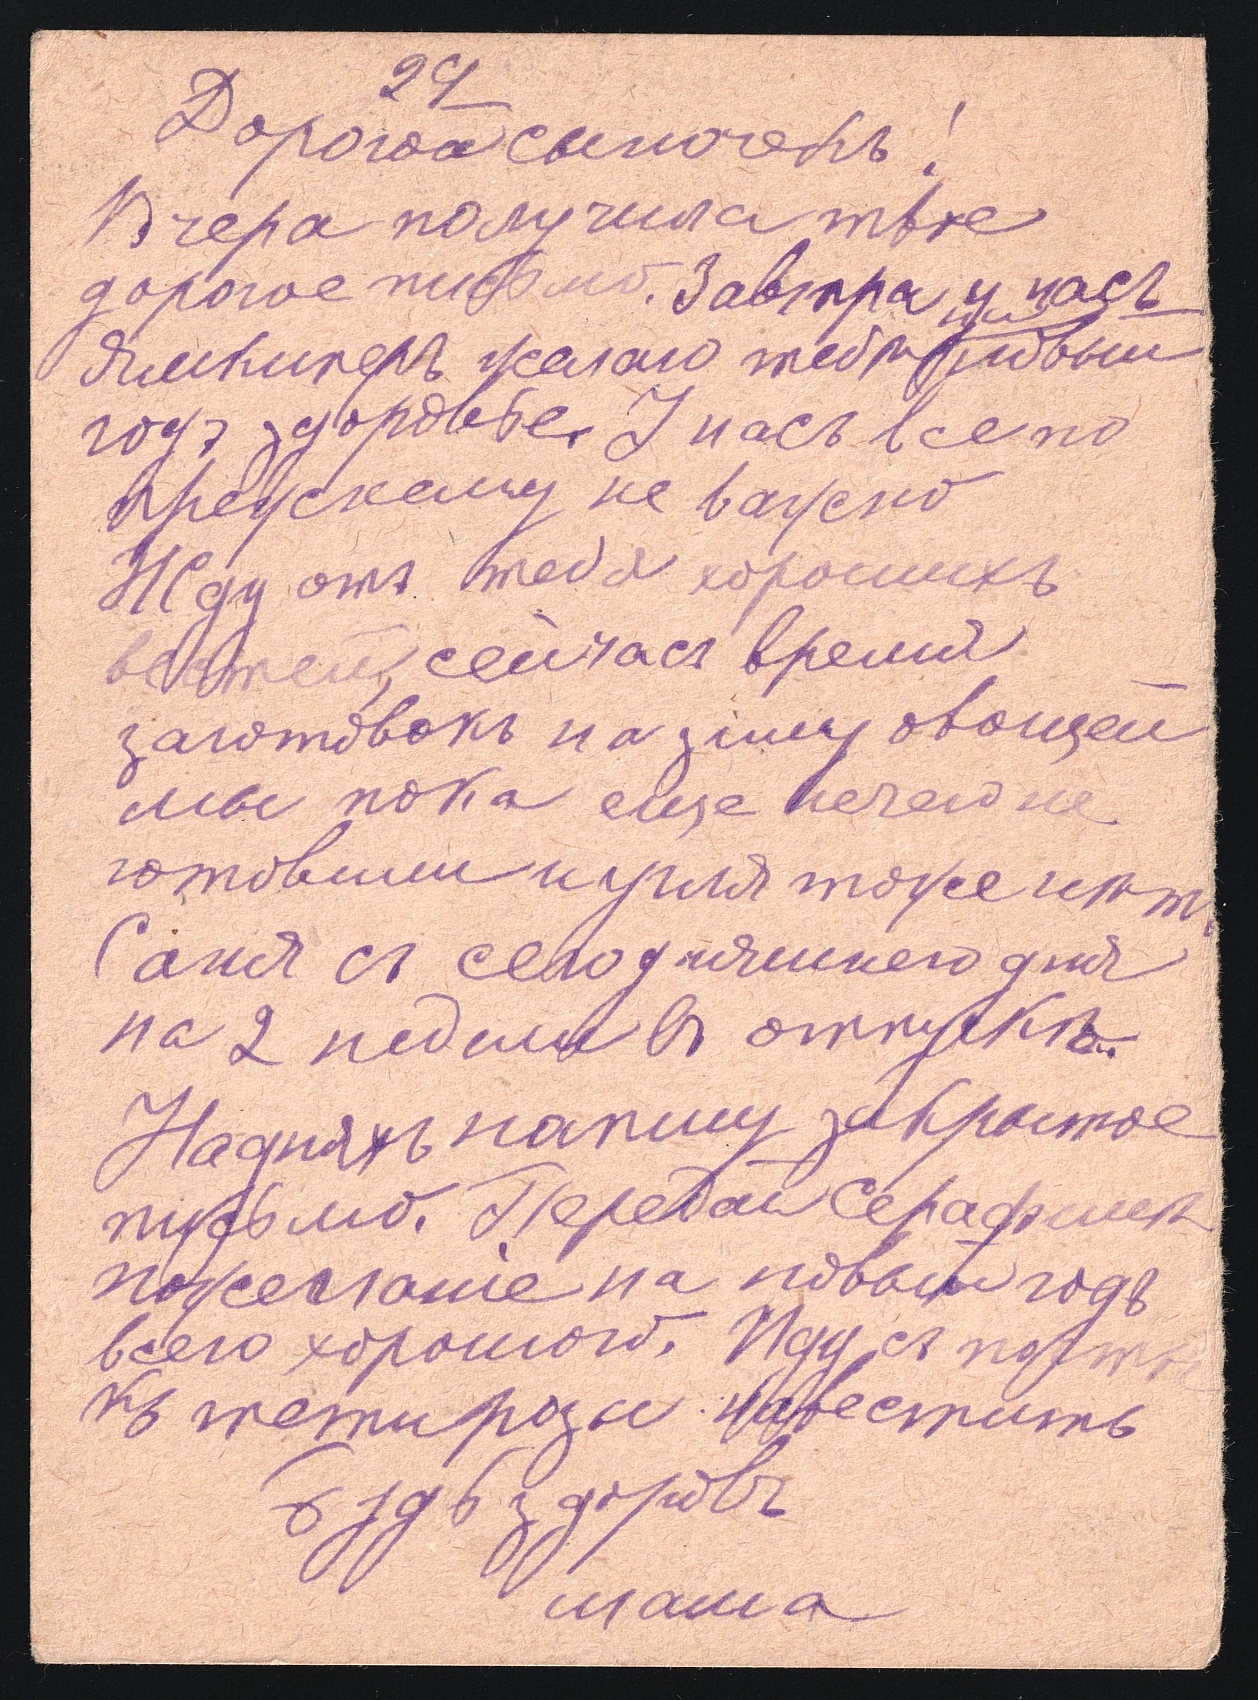 24
Дорогой сыночекъ!
Вчера получила твое
дорогое письмо. Завтра у насъ
желаю тебѣ новый
годъ здоровье. У насъ все по
прежнему не важно
Жду отъ тебя хорошихъ
вестей, сейчасъ время
заготовокъ на зиму овощей
мы пока еще нечего не
готовили и угля тоже нѣтъ
Саня съ сегодняшнего дня
на 2 недели въ отпускѣ.
На дняхъ напишу закрытое
письмо. Передай Серафимѣ
пожелание на новый годъ
всего хорошого. Иду съ почты
къ тети розы навестить
Будь здоровъ
мама